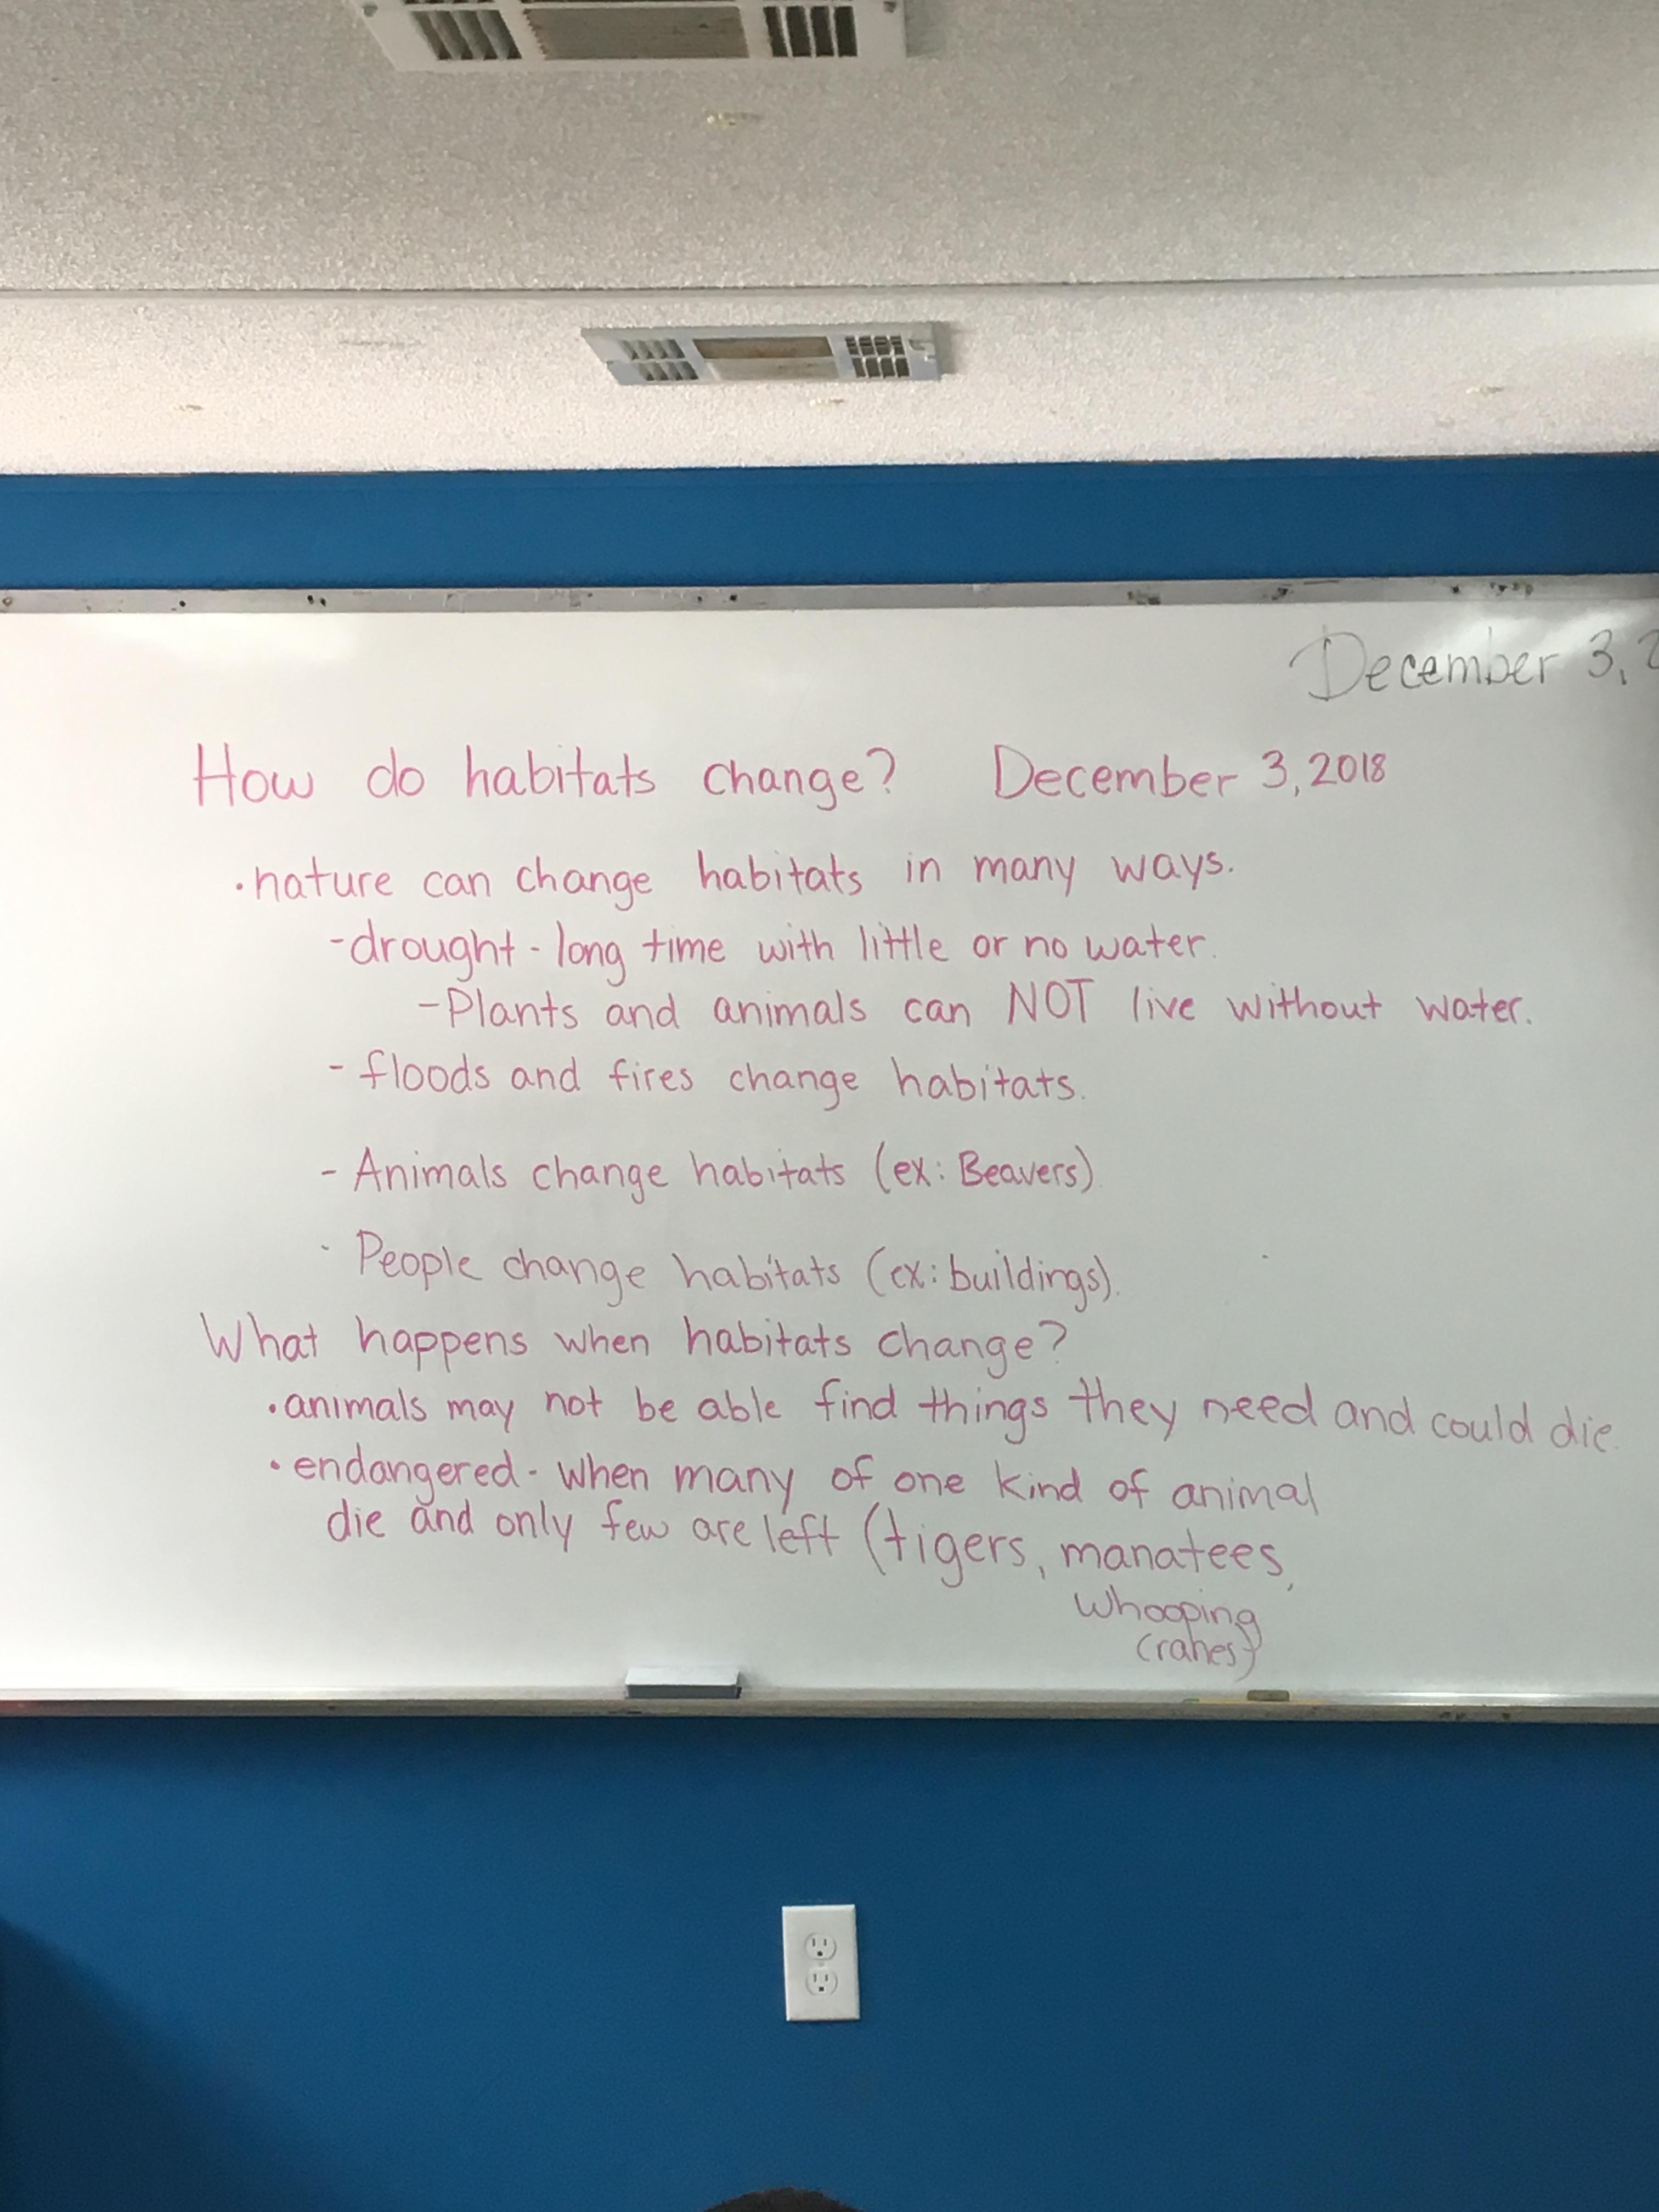 December 3,
How do habitats change? December 3, 2018
• nature can change habitats in many ways.
- drought - long time with little or no water.
- Plants and animals can NOT live without water.
- floods and fires change habitats.
- Animals change habitats (ex: Beavers)
- People change habitats (ex: buildings).
What happens when habitats change?
• animals may not be able find things they need and could die.
• endangered - when many of one kind of animal
die and only few are left (tigers, manatees,
Whooping
Cranes)